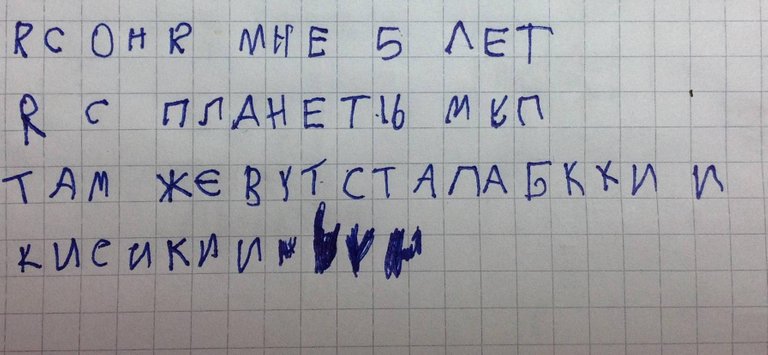 RСОНR МНЕ 5 ЛЕТ
R С ПЛАНЕТЫ МКП
ТАМ ЖЕВУТ СТАЛАБККИ И
КИСИКИИ